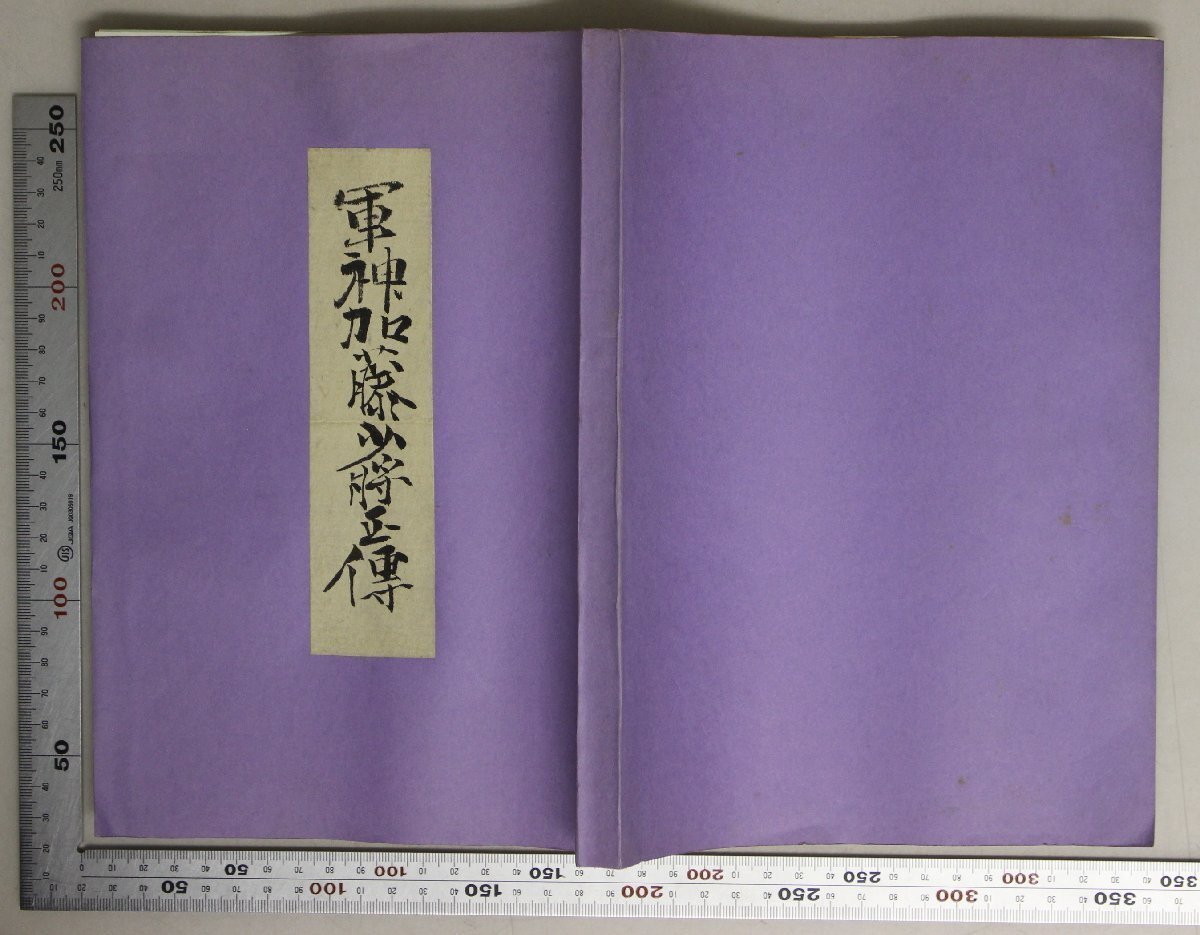 軍神加藤少将正傳
250
250mm
200
150
JIS
100
50
50 100 150 200 250 300 350
50 100 150 200 250 300 350